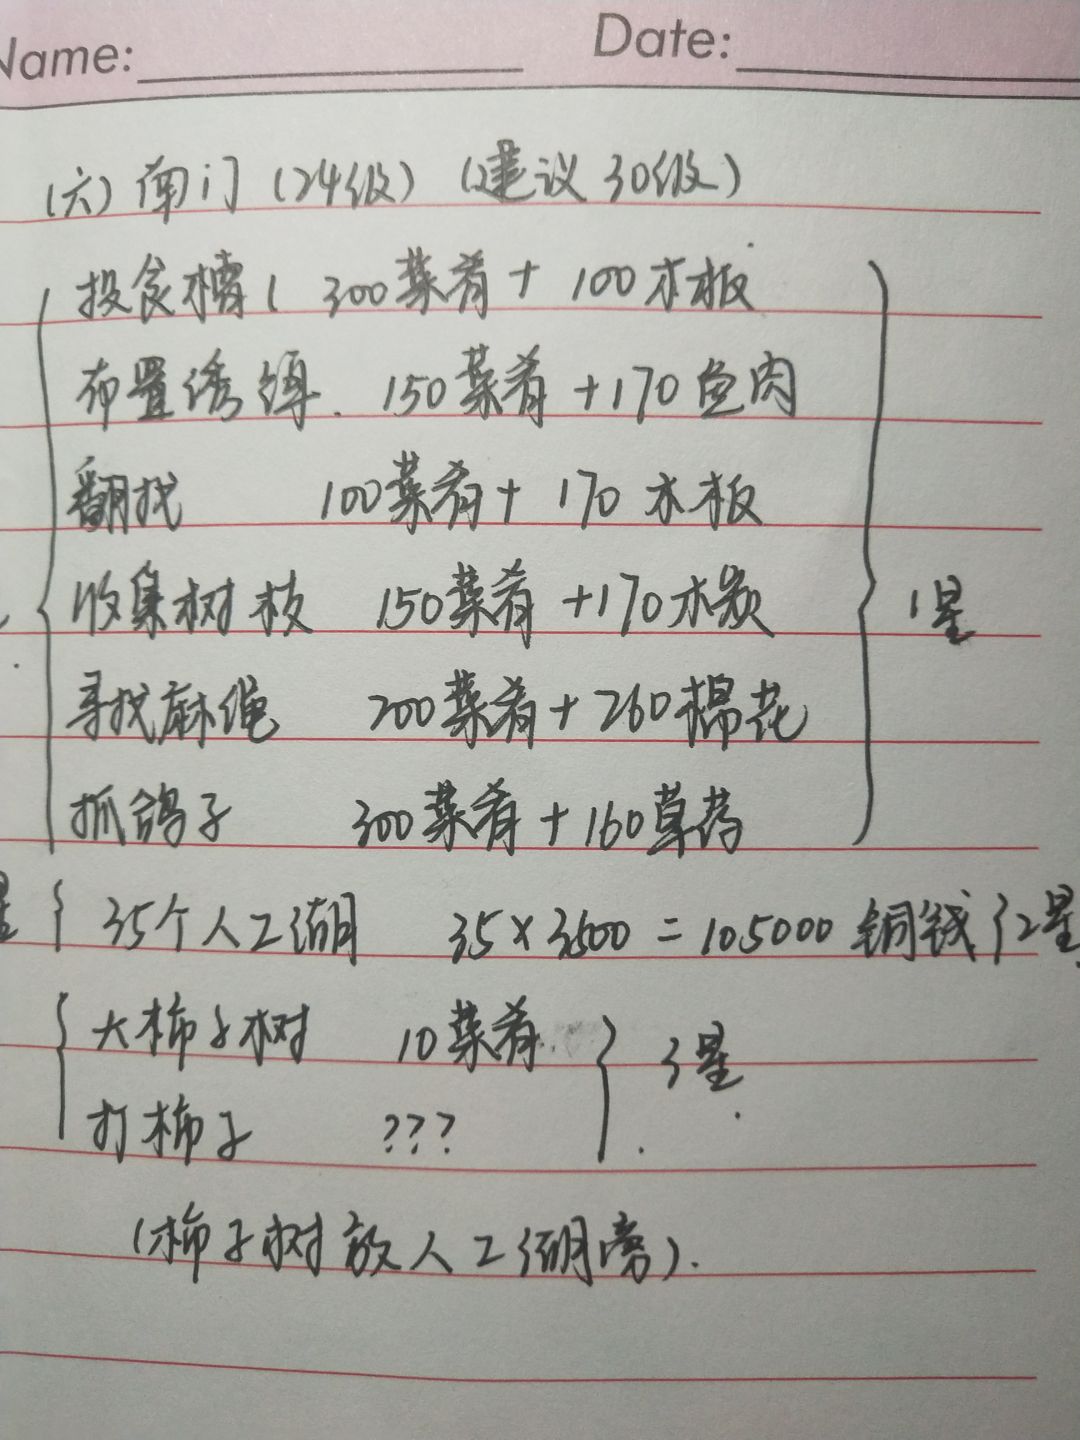 Name: Date:
(六) 南门 (24级) (建议30级)
投食槽 300菜肴 + 100木板
布置诱饵. 150菜肴 +170鱼肉
翻找 100菜肴+ 170 木板
收集树枝 150菜肴 +170木炭
寻找麻绳 200菜肴+260棉花
抓鸽子 300菜肴+160草药
1星
星 { 35个人工湖 35×3500 = 105000 铜钱 } 2星
大柿子树 10菜肴
打柿子 ???
3星
(柿子树放人工湖旁).